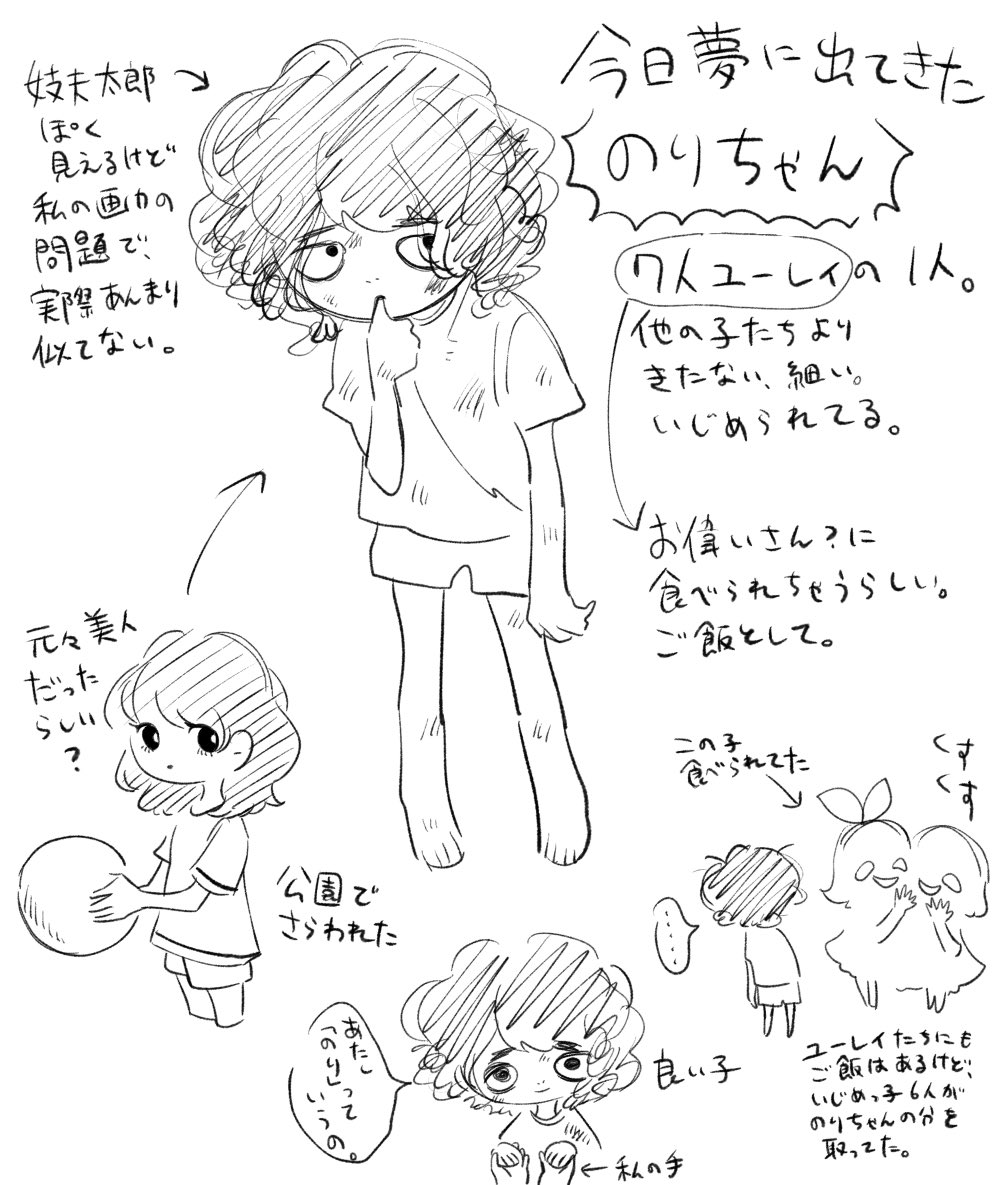 今日夢に出てきた
のりちゃん
7人ユーレイの1人。
他の子たちより
きたない、細い。
いじめられてる。
お偉いさん?に
食べられちゃうらしい。
ご飯として。
妓夫太郎
ぽく
見えるけど
私の画力の
問題で、
実際あんまり
似てない。
元々美人
だった
らしい
?
公園で
さらわれた
この子
食べられてた
くす
くす
.....
ユーレイたちにも
ご飯はあるけど、
いじめっ子6人が
のりちゃんの分を
取ってた。
あたし
「のり」って
いうの。
良い子
私の手